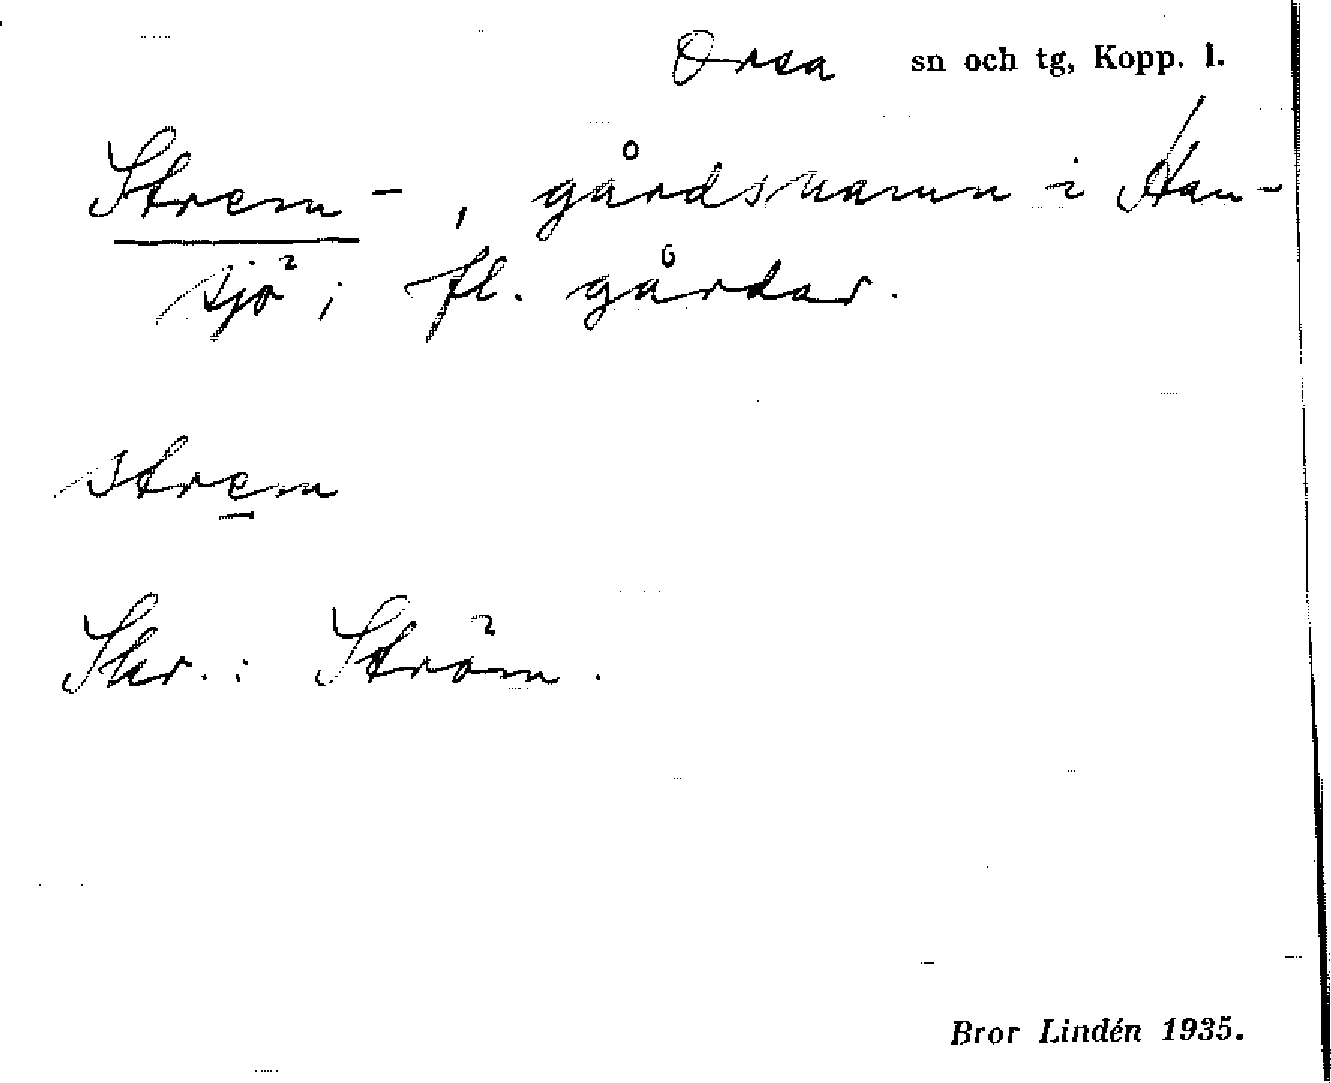 Orsa sn och tg, Kopp. l.
Strem-, gårdsnamn i Han-
sjö; fl. gårdar.
strem
Skr.: Ström.
Bror Lindén 1935.